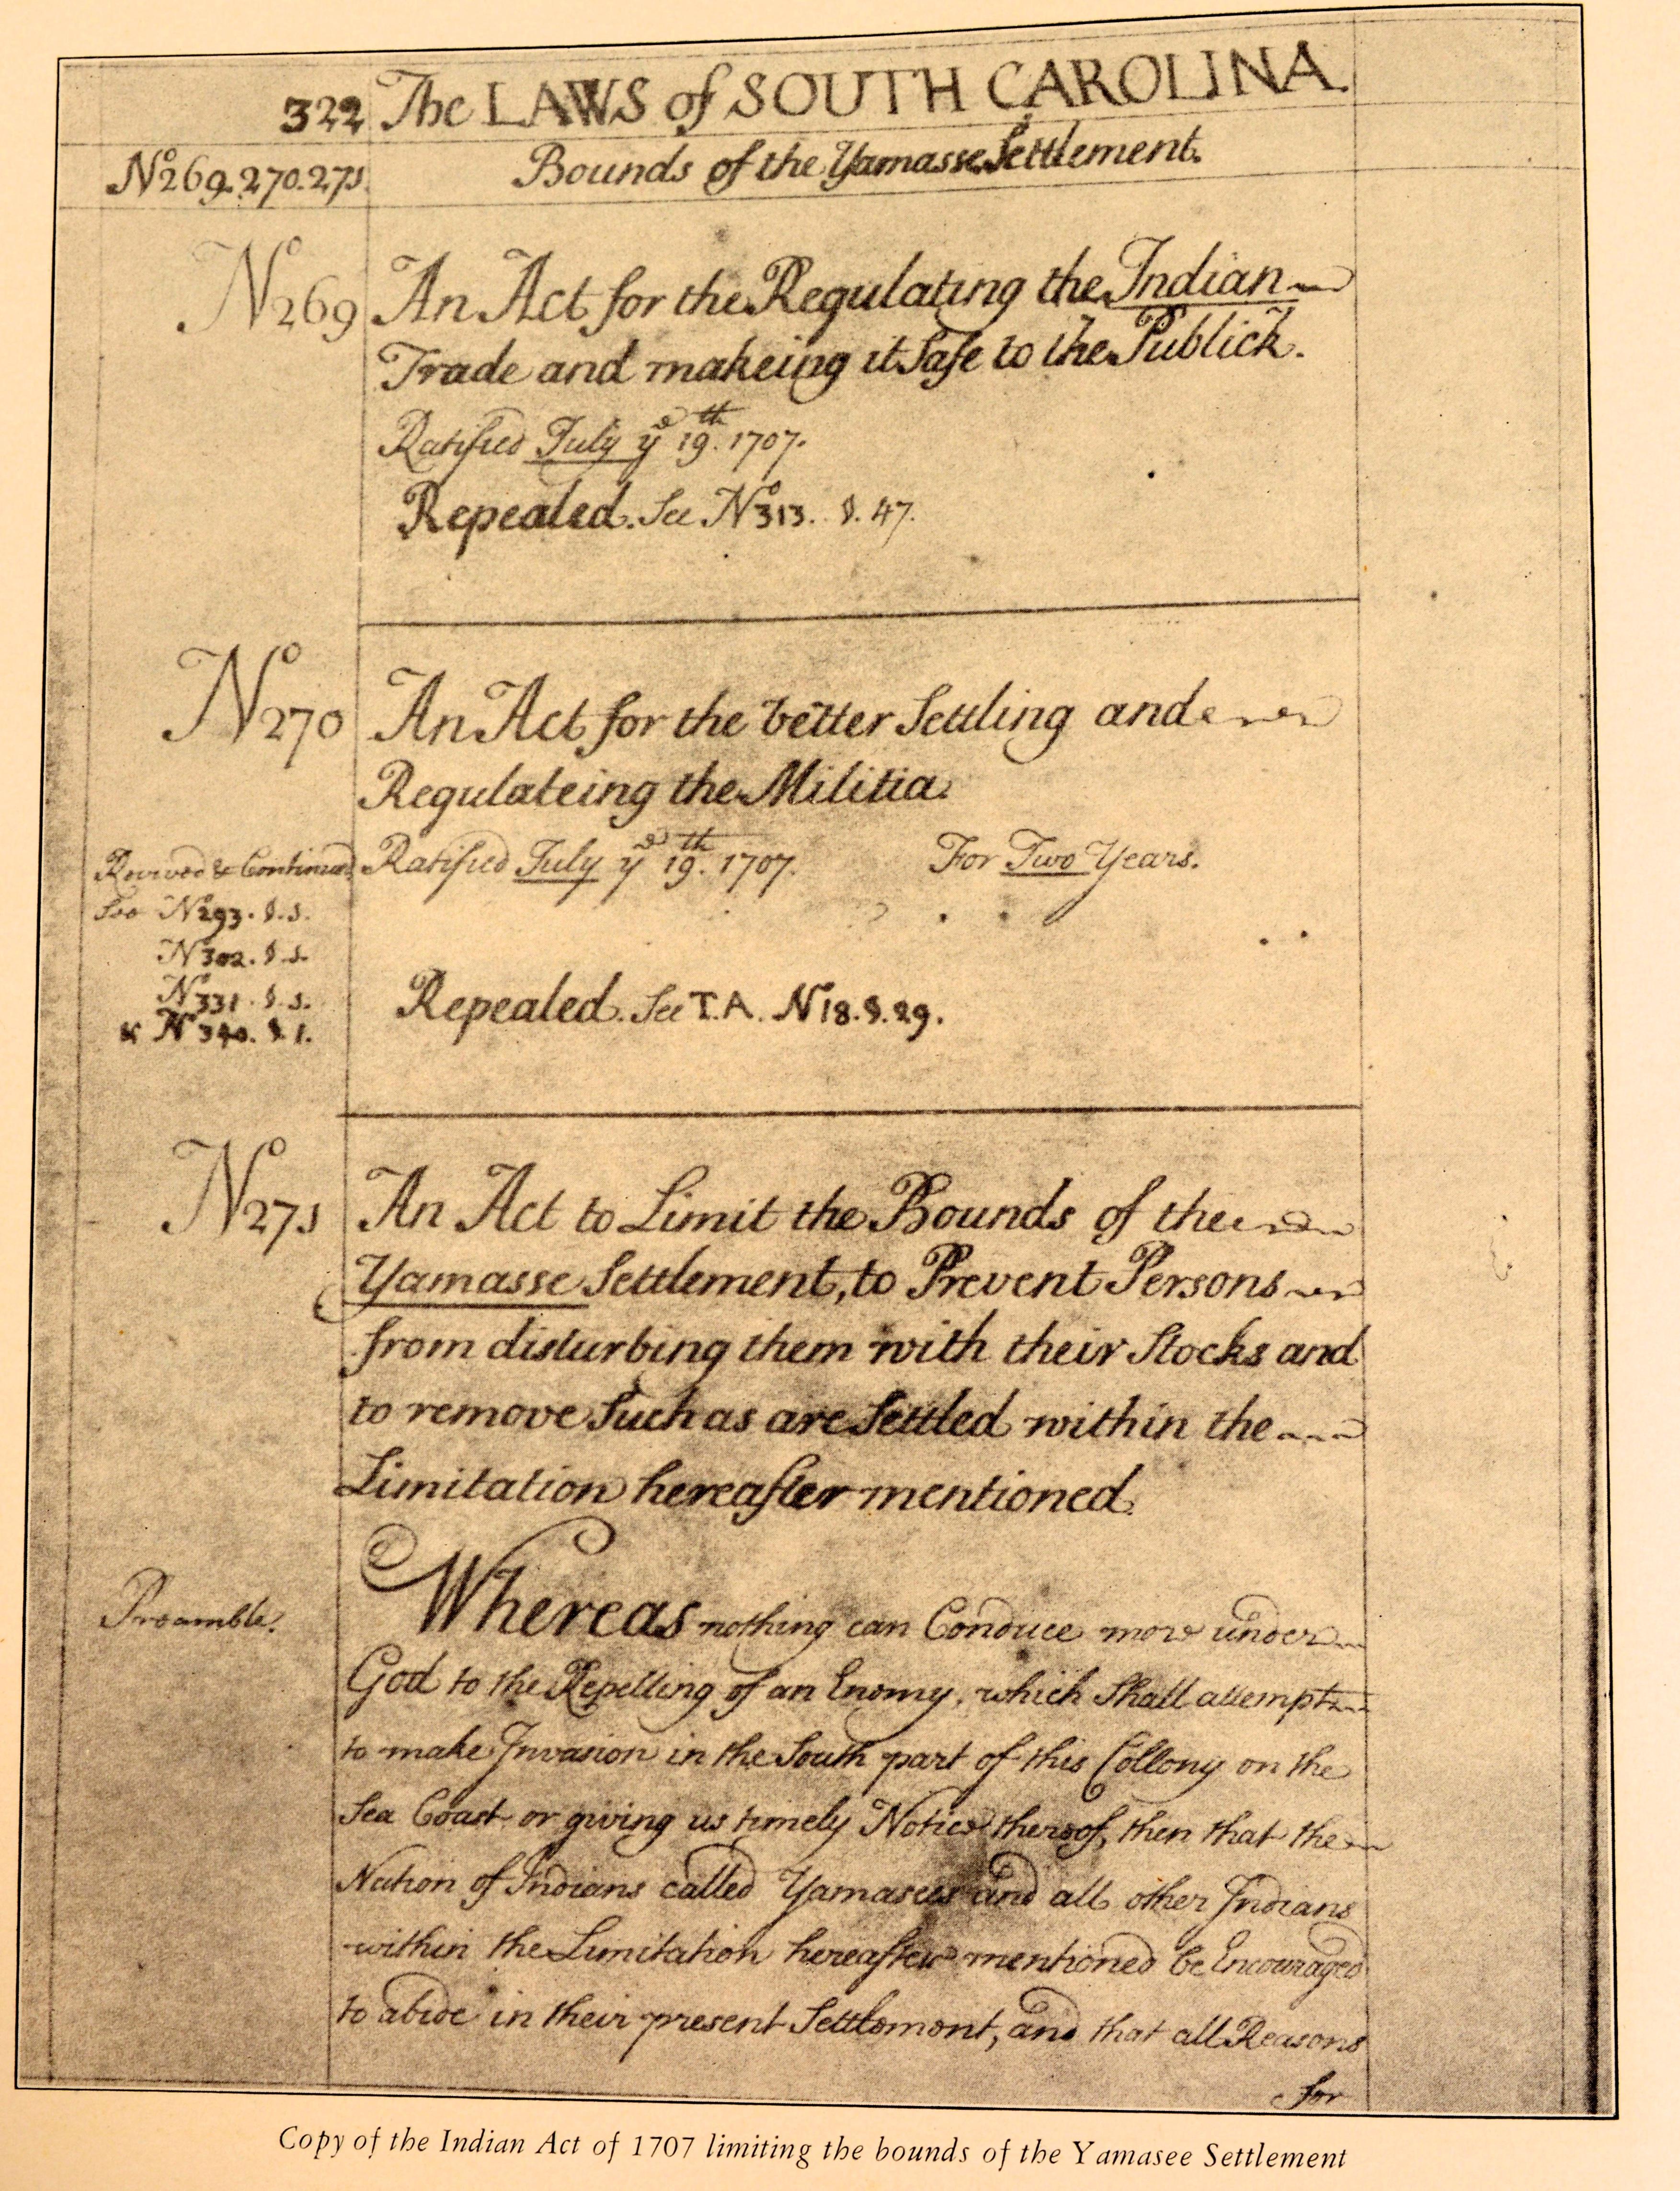 322 The LAWS of SOUTH CAROLINA.
No 269. 270. 271. Bounds of the Yamasse Settlement.
No 269 An Act for the Regulating the Indian
Trade and makeing it Safe to the Publick.
Ratified July ye 19th. 1707.
Repealed. See No 313. §. 47.
No 270 An Act for the better Settling and
Regulateing the Militia.
Revived & Continued Ratified July ye 19th. 1707. For Two Years.
See No 293. §. 1.
No 302. §. 1.
No 331. §. 1.
& No 340. §. 1.
Repealed. See T.A. No 18. §. 29.
No 271 An Act to Limit the Bounds of the
Yamasse Settlement, to Prevent Persons
from disturbing them with their Stocks and
to remove Such as are Settled within the
Limitation hereafter mentioned.
Preamble. Whereas nothing can Conduce more under
God to the Repelling of an Enemy, which Shall attempt
to make Invasion in the South part of this Collony on the
Sea Coast or giving us timely Notice thereof, then that the
Nation of Indians called Yamasees and all other Indians
within the Limitation hereafter mentioned be Encouraged
to abide in their present Settlement, and that all Reasons
for
Copy of the Indian Act of 1707 limiting the bounds of the Yamasee Settlement